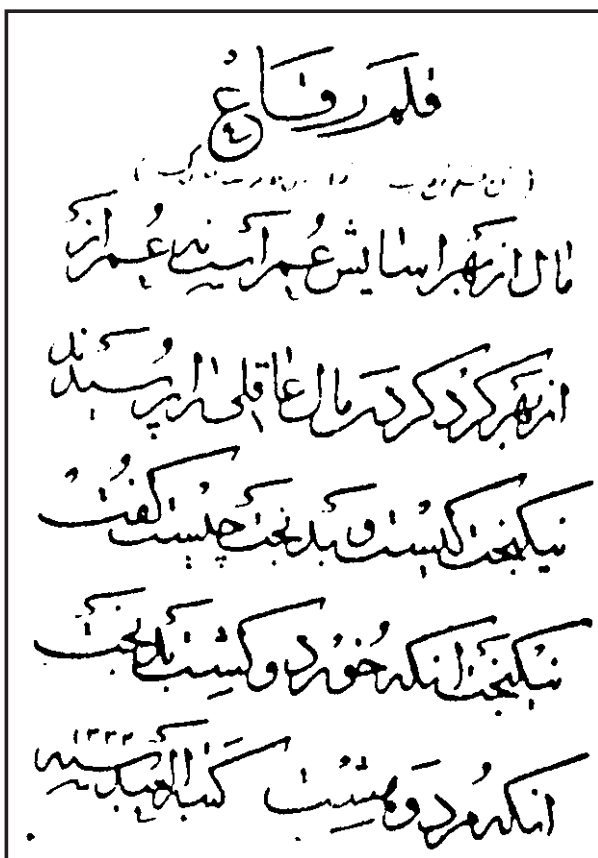 قلم رقاع
٤
مال از بهر اسایش عمر است نه عمر از
از بهر کرد کردن مال عاقلی را پرسیدند
نیکبخت کیست و بدبخت چیست کفت
نیکبخت انکه خورد و کشت بدبخت
انکه مرد و هشت کتبه العبد ۱۳۳۲